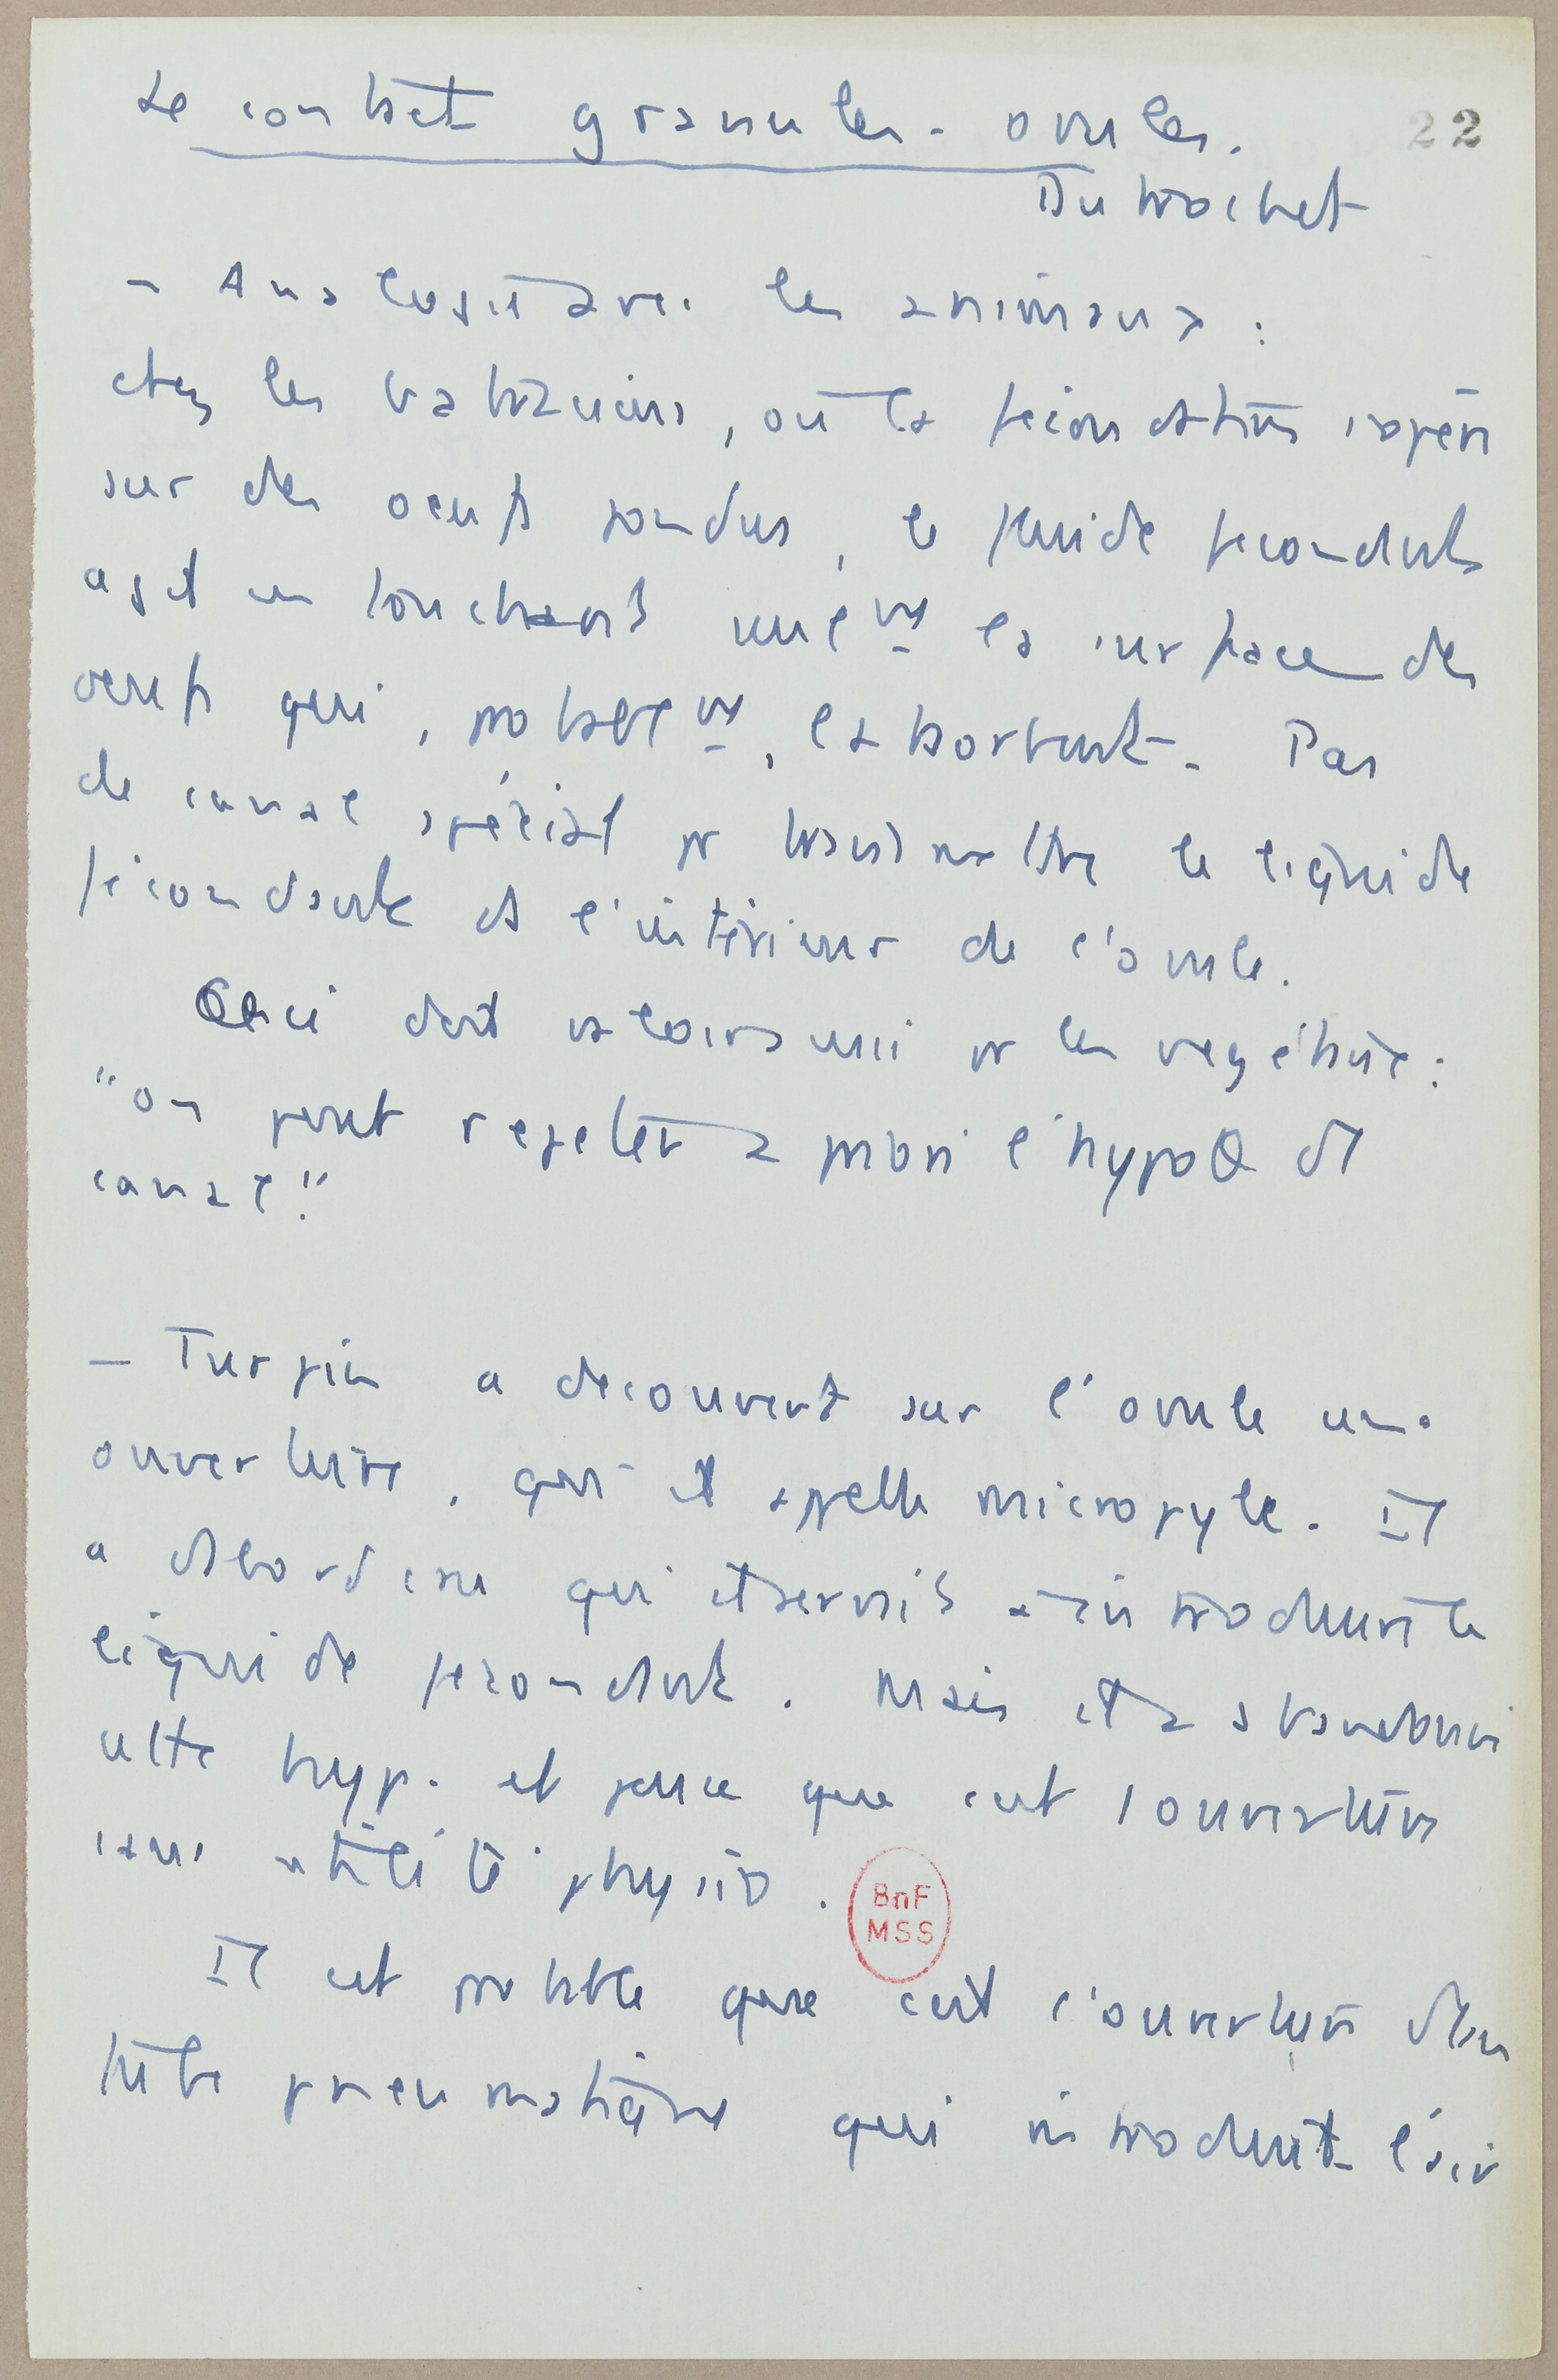 Le contact granules - ovules.
22
Dutrochet
- Analogie avec les animaux :
chez les batraciens, où la fécondation s'opère
sur des oeufs pondus, le fluide fécondant
agit en touchant seulemt la surface des
oeufs qui, probablemt, l'absorbent. Pas
de canal spécial pr transmettre le liquide
fécondant à l'intérieur de l'ovule.
Ceci doit valoir aussi pr les végétaux :
"on peut rejeter a priori l'hypoθ du
canal".
- Turpin a découvert sur l'ovule une
ouverture, qu'il appelle micropyle. Il
a d'abord cru qu'il servait à introduire le
liquide fécondant. Mais il a abandonné
cette hyp. et pense que c'est 1 ouverture
sans utilité physio.
BnF
MSS
Il est probable que c'est l'ouverture d'un
tube pneumatique qui introduit l'air